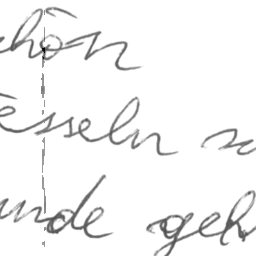 chön
esseln
unde geh